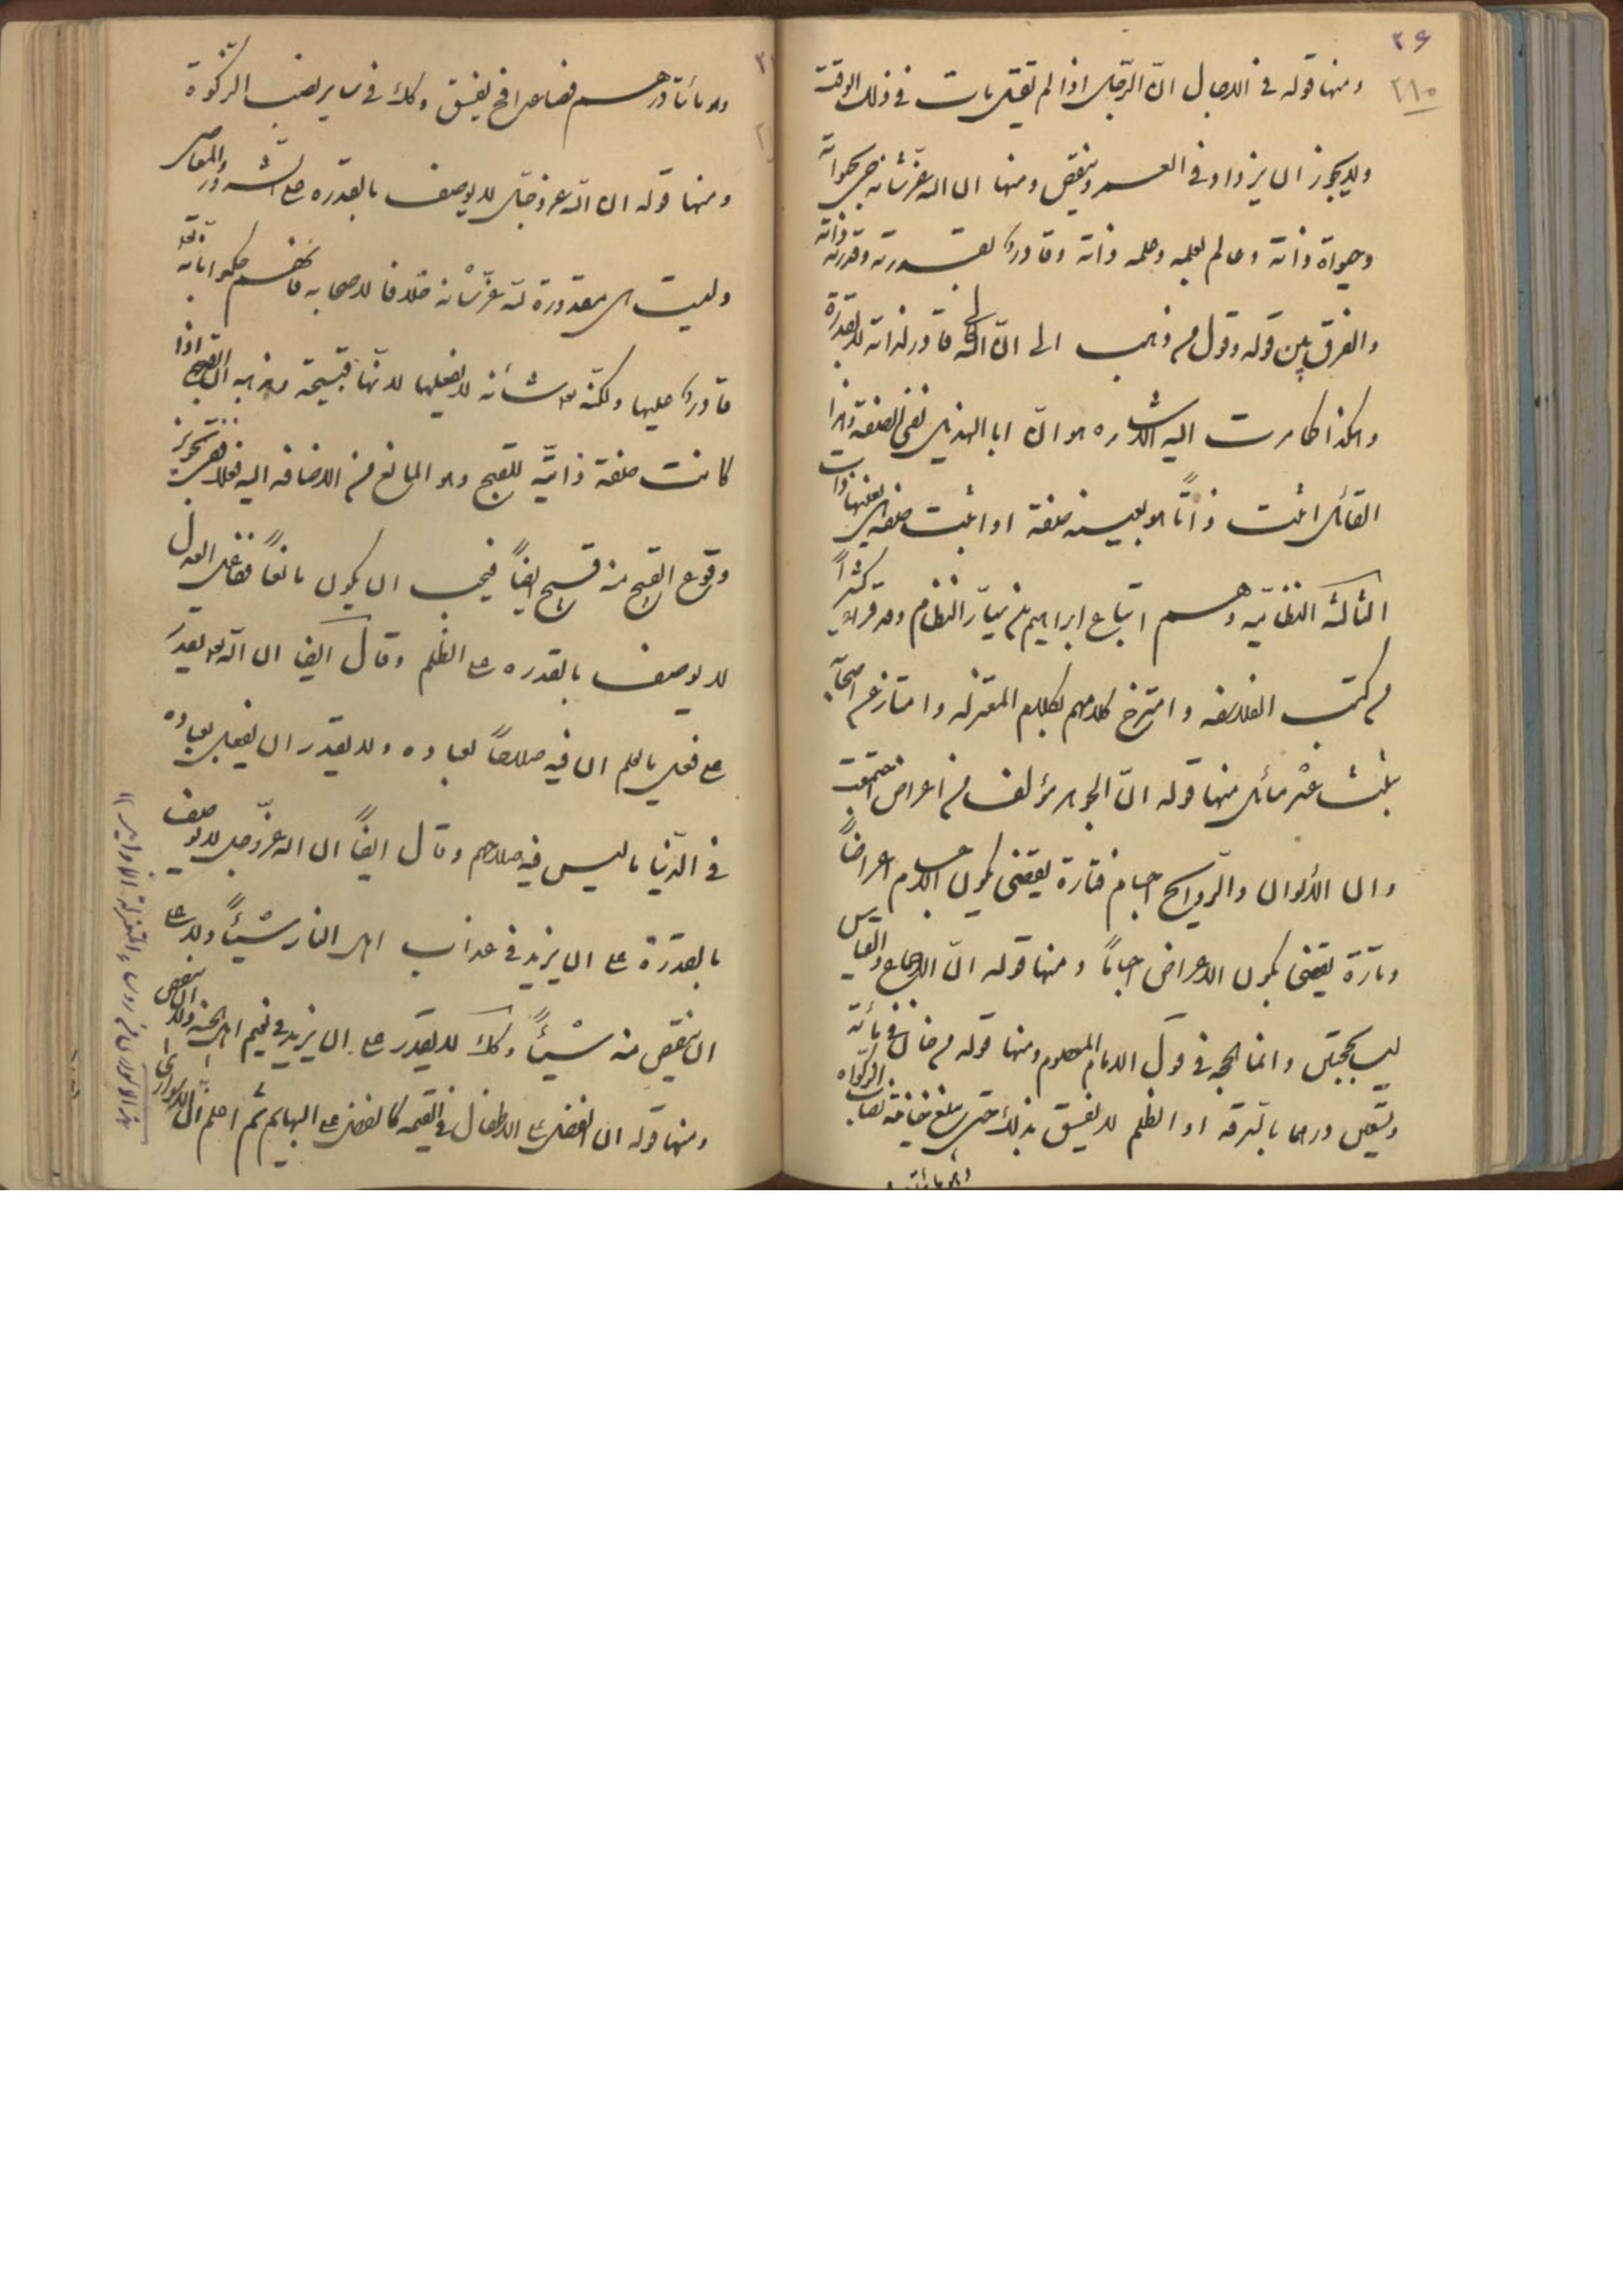 ۳۶
۲۱۰
ومنها قوله فى الاجال انّ الرّجل اذا لم يقتل مات فى ذلك الوقت
ولايجوز ان يزداد فى العمر وينقص ومنها ان الله عزّ شأنه حىّ بحيواة
وحيواة ذاته وعالم بعلمه وعلمه ذاته وقادر بقدرته وقدرته ذاته
والفرق بين قوله وقول من ذهب الى انّ الله تعالى قادر لذاته لا بقدرة
وهكذا كما مرت اليه الاشاره هو انّ ابا الهذيل نفى الصفة وهذا
القائل اثبت ذاتاً هو بعينه صفة او اثبت صفة هى بعينها ذات
الثالثة النظّاميّه وهم اتباع ابراهيم بن سيّار النظّام وقد قرء كثيراً
من كتب الفلاسفه وامتزج كلامهم بكلام المعتزله وامتاز عن اصحابه
بثلث عشر مسائل منها قوله انّ الجوهر مؤلف من اعراض اجتمعت
وان الألوان والرّوايح اجسام فتارة يقتضى بكون الاجسام اعراضاً
وتارة يقتضى بكون الاعراض اجساماً ومنها قوله انّ الاجماع والقياس
ليسا بحجّتين وانما الحجه فى قول الامام المعصوم ومنها قوله من خان فى مائة
وتسعين درهما بالسّرقه او الظلم لا يفسق بذلك حتى يبلغ خيانته نصاب الزكواة
وهو مائتا درهم فصاعدا فح يفسق وكذلك فى ساير نصب الزّكوة
ومنها قوله ان الله عز وجلّ لا يوصف بالقدره على الشّرور والمعاصى
وليست هى مقدورة لله عزّ شأنه خلافا لاصحابه فانهم حكموا بانه تعالى
قادر عليها ولكنّه شأنه لا يفعلها لانّها قبيحة ومذهبه ان القبح اذا
كانت صفة ذاتيّه للقبح وهو المانع من الاضافه اليه فعلا ففى تجويز
وقوع القبيح منه قبيح ايضاً فيجب ان يكون مانعاً ففاعل العدل
لا يوصف بالقدره على الظّلم وقال ايضا ان الله يقدر
على فعل ما علم ان فيه صلاحاً لعباده ولا يقدر ان يفعل بعباده
فى الدّنيا ما ليس فيه صلاحهم وقال ايضاً ان الله عزّ وجل لا يوصف
بالقدرة على ان يزيد فى عذاب اهل النار شيئاً ولا على
ان ينقص منه شيئاً وكذلك لا يقدر على ان يزيد فى نعيم اهل الجنه ولا ان ينقص
ومنها قوله ان الفضل على الاطفال فى القيمه كالفضل على البهايم ثم اعلم انّ الاسوارى